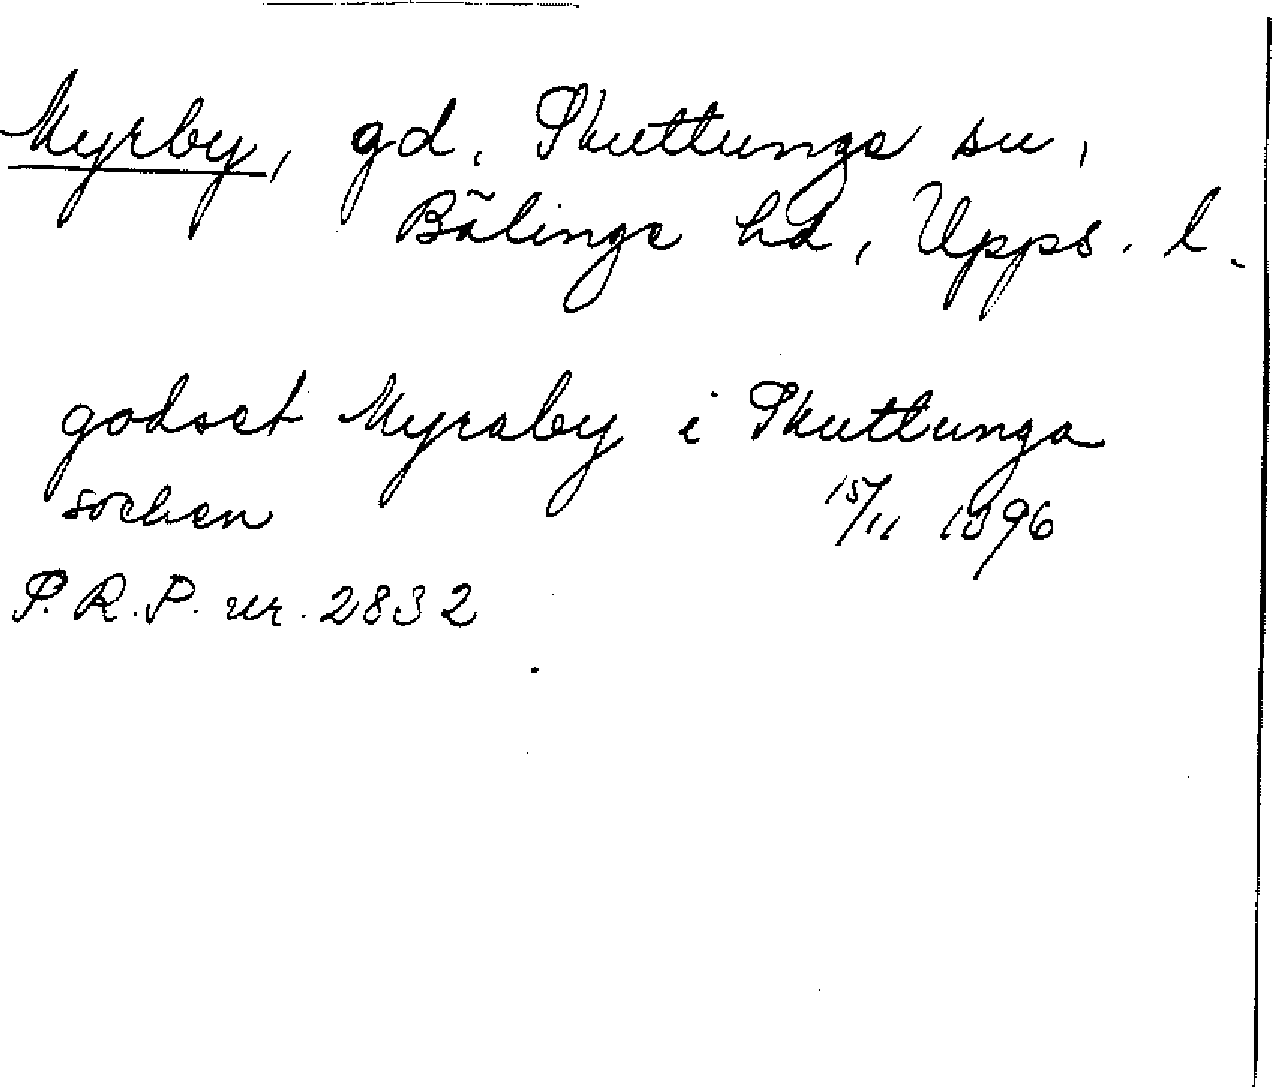 Myrby, gd, Skuttunge sn,
Bälinge hd, Upps. l.
godset Myraby i Skuttunga
socken 15/11 1396
S.R.P. nr. 2832